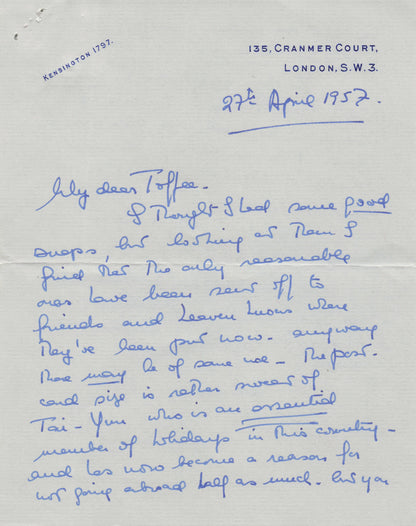 KENSINGTON 1797.
135, CRANMER COURT,
LONDON, S.W.3.
27th April 1957.
My dear Toffee.
I thought I had some good
snaps, but looking at them I
find that the only reasonable
ones have been sent off to
friends and heaven knows where
they've been put now. anyway
these may be of some use - the post-
card size is rather sweet of
Tai-Yuu who is an essential
member of holidays in this country -
and has now become a reason for
not going abroad half as much. but you